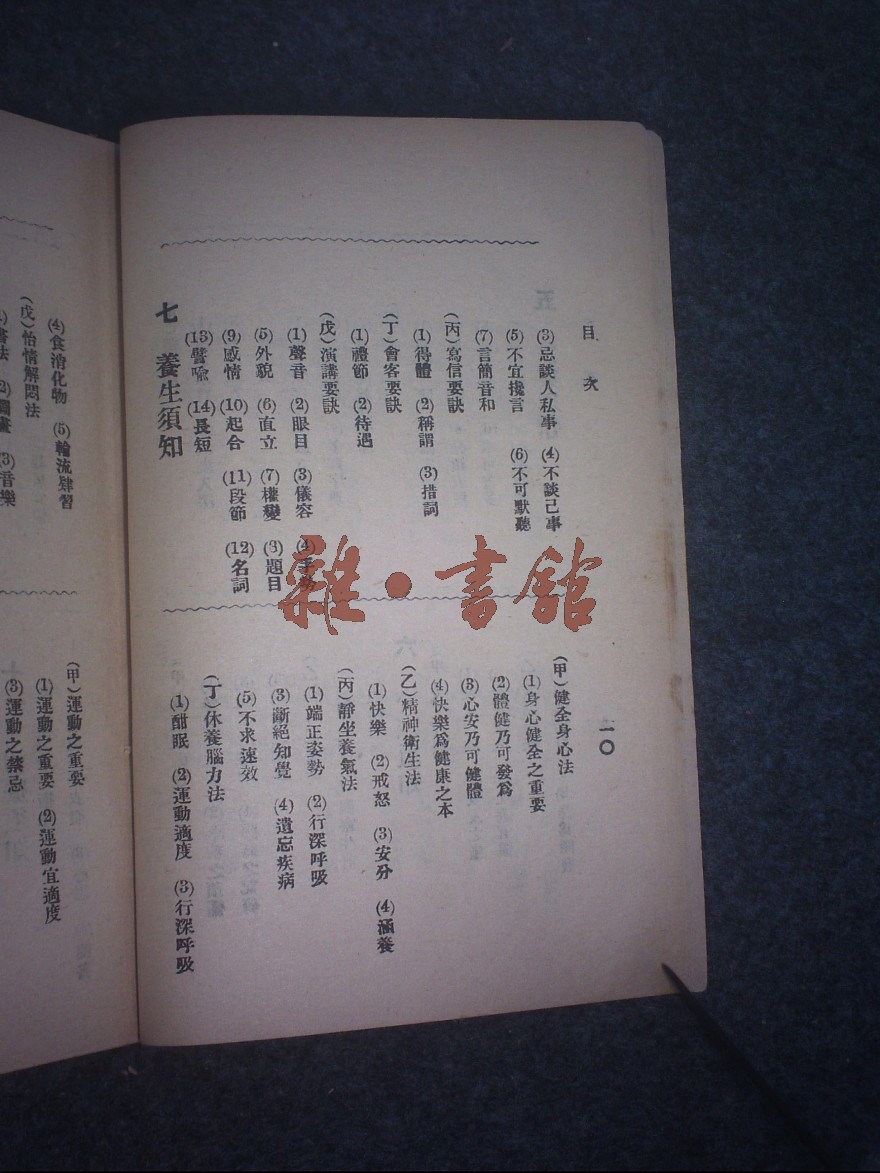 目次
(3)忌談人私事 (4)不談己事
(5)不宜攙言 (6)不可默聽
(7)言簡音和
(丙)寫信要訣
(1)得體 (2)稱謂 (3)措詞
(丁)會客要訣
(1)禮節 (2)待遇
(戊)演講要訣
(1)聲音 (2)眼目 (3)儀容 (4)手勢
(5)外貌 (6)直立 (7)權變 (3)題目
(9)感情 (10)起合 (11)段節 (12)名詞
(13)譬喩 (14)長短
七 養生須知
一〇
(甲)健全身心法
(1)身心健全之重要
(2)體健乃可發爲
(3)心安乃可健體
(4)快樂爲健康之本
(乙)精神衛生法
(1)快樂 (2)戒怒 (3)安分 (4)涵養
(丙)靜坐養氣法
(1)端正姿勢 (2)行深呼吸
(3)斷絕知覺 (4)遺忘疾病
(5)不求速效
(丁)休養腦力法
(1)酣眠 (2)運動適度 (3)行深呼吸
(4)食消化物 (5)輪流肄習
(戊)怡情解悶法
書法 (2)圖畫 (3)音樂
(甲)運動之重要
(1)運動之重要 (2)運動宜適度
(3)運動之禁忌
雜·書館